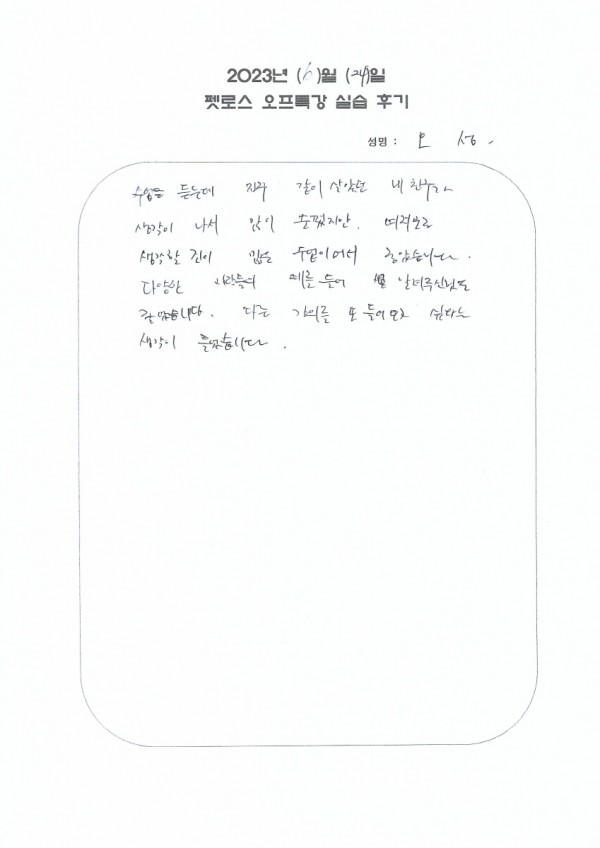 2023년 (6)월 (24)일
펫로스 오프특강 실습 후기
성명 : 오 성.
수업을 듣는데 자꾸 같이 살았던 내 친구가
생각이 나서 맘이 슬펐지만. 여러모로
생각할 것이 많은 수업이어서 좋았습니다.
다양한 사람들의 예를 들어 알려주신것도
좋았습니다. 다른 강의를 또 들어보고 싶다는
생각이 들었습니다.